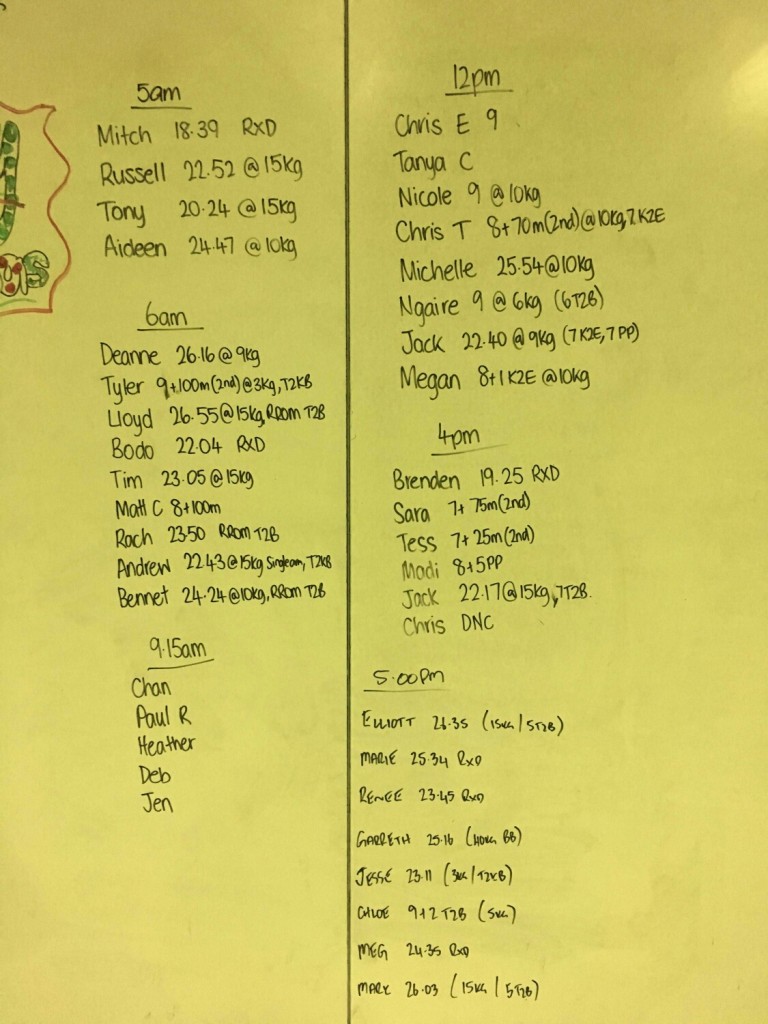 5am
Mitch 18.39 RXD
Russell 22.52 @ 15kg
Tony 20.24 @ 15kg
Aideen 24.47 @ 10kg
6am
Deanne 26.16 @ 9kg
Tyler 9+100m(2nd)@3kg, T2KB
Lloyd 26.55@15kg, RROM T2B
Bodo 22.04 RXD
Tim 23.05 @ 15kg
Matt C 8+100m
Rach 23.50 RROM T2B
Andrew 22.43@15kg Singlearm, T2KB
Bennet 24.24@10kg, RROM T2B
9.15am
Chan
Paul R
Heather
Deb
Jen
12pm
Chris E 9
Tanya C
Nicole 9 @ 10kg
Chris T 8+70m(2nd)@10kg, 7 K2E
Michelle 25.54@10kg
Ngaire 9 @ 6kg (6T2B)
Jack 22.40 @ 9kg (7 K2E, 7 PP)
Megan 8+1 K2E @10kg
4pm
Brenden 19.25 RXD
Sara 7+75m(2nd)
Tess 7+25m(2nd)
Madi 8+5PP
Jack 22.17@15kg, 7T2B.
Chris DNC
5.00pm
ELLIOTT 26.35 (15KG / 5T2B)
MARIE 25.34 RXD
RENEE 23.45 RXD
GARRETH 25.16 (40KG BB)
JESSE 23.11 (3KG / T2KB)
CHLOE 9+2 T2B (5KG)
MEG 24.35 RXD
MARK 26.03 (15KG / 5T2B)